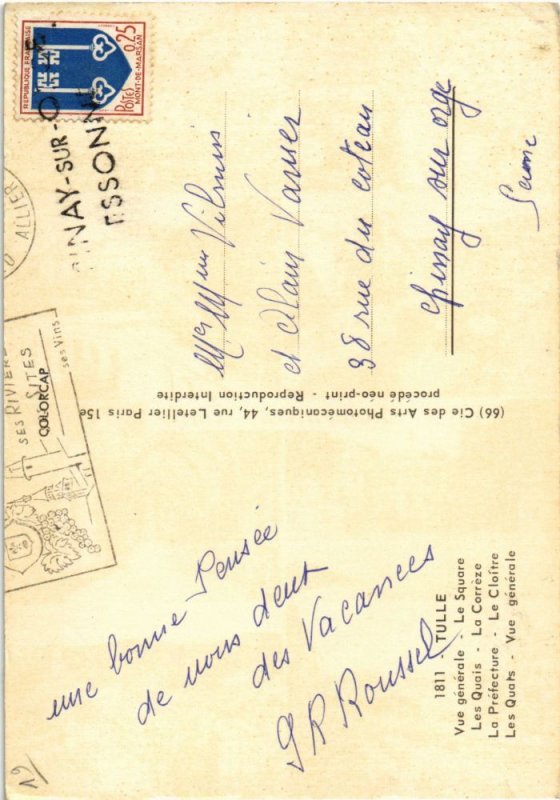 1811 - TULLE
Vue générale - Le Square
Les Quais - La Corrèze
La Préfecture - Le Cloître
Les Quais - Vue générale
une bonne Pensée
de nous deux
des Vacances
J R Roussel
(66) Cie des Arts Photomécaniques, 44, rue Letellier Paris 15e
procédé néo-print - Reproduction Interdite
COLORCAP
SES RIVIERES
SITES
ses Vins
ALLIER
REPUBLIQUE FRANÇAISE
0,25
POSTES
MONT-DE-MARSAN
-SUR-O
ESSONNE
Mr Mme Vilmin
et Alain Vanier
38 rue du coteau
Epinay sur orge
Seine
19